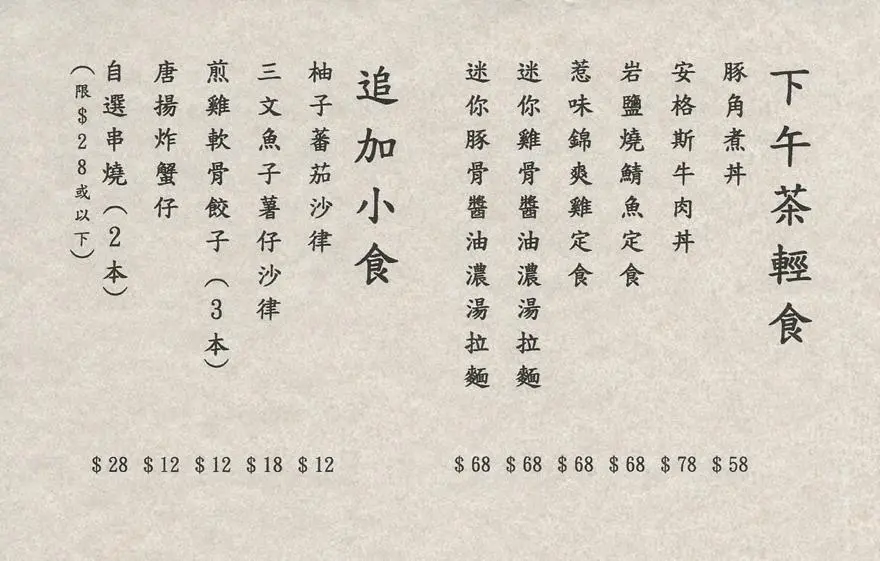 下午茶輕食
豚角煮丼
$58
安格斯牛肉丼
$78
岩鹽燒鯖魚定食
$68
惹味錦爽雞定食
$68
迷你雞骨醬油濃湯拉麵
$68
迷你豚骨醬油濃湯拉麵
$68
追加小食
柚子蕃茄沙律
$12
三文魚子薯仔沙律
$18
煎雞軟骨餃子（3本）
$12
唐揚炸蟹仔
$12
自選串燒（2本）
（限$28或以下）
$28